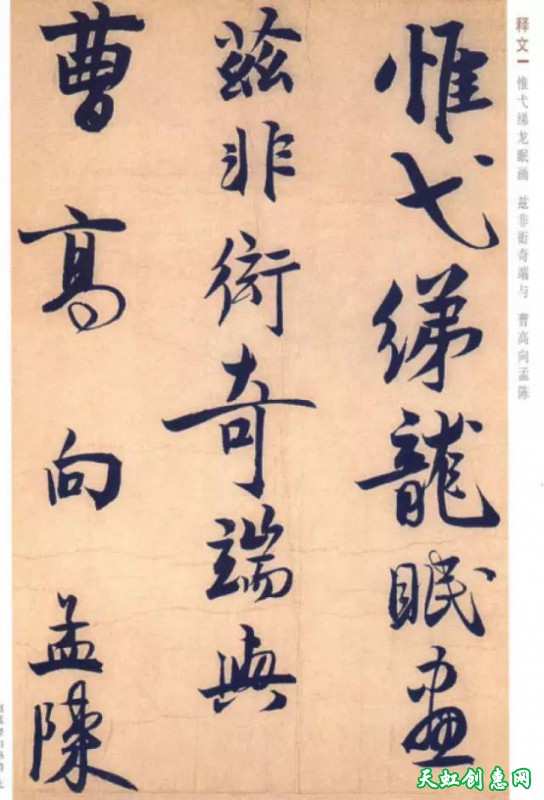 惟弋绨龍眠畫
兹非衒奇端與
曹高向孟陳
释文一 惟弋绨龙眠画 兹非衒奇端与 曹高向孟陈
天虹创惠网